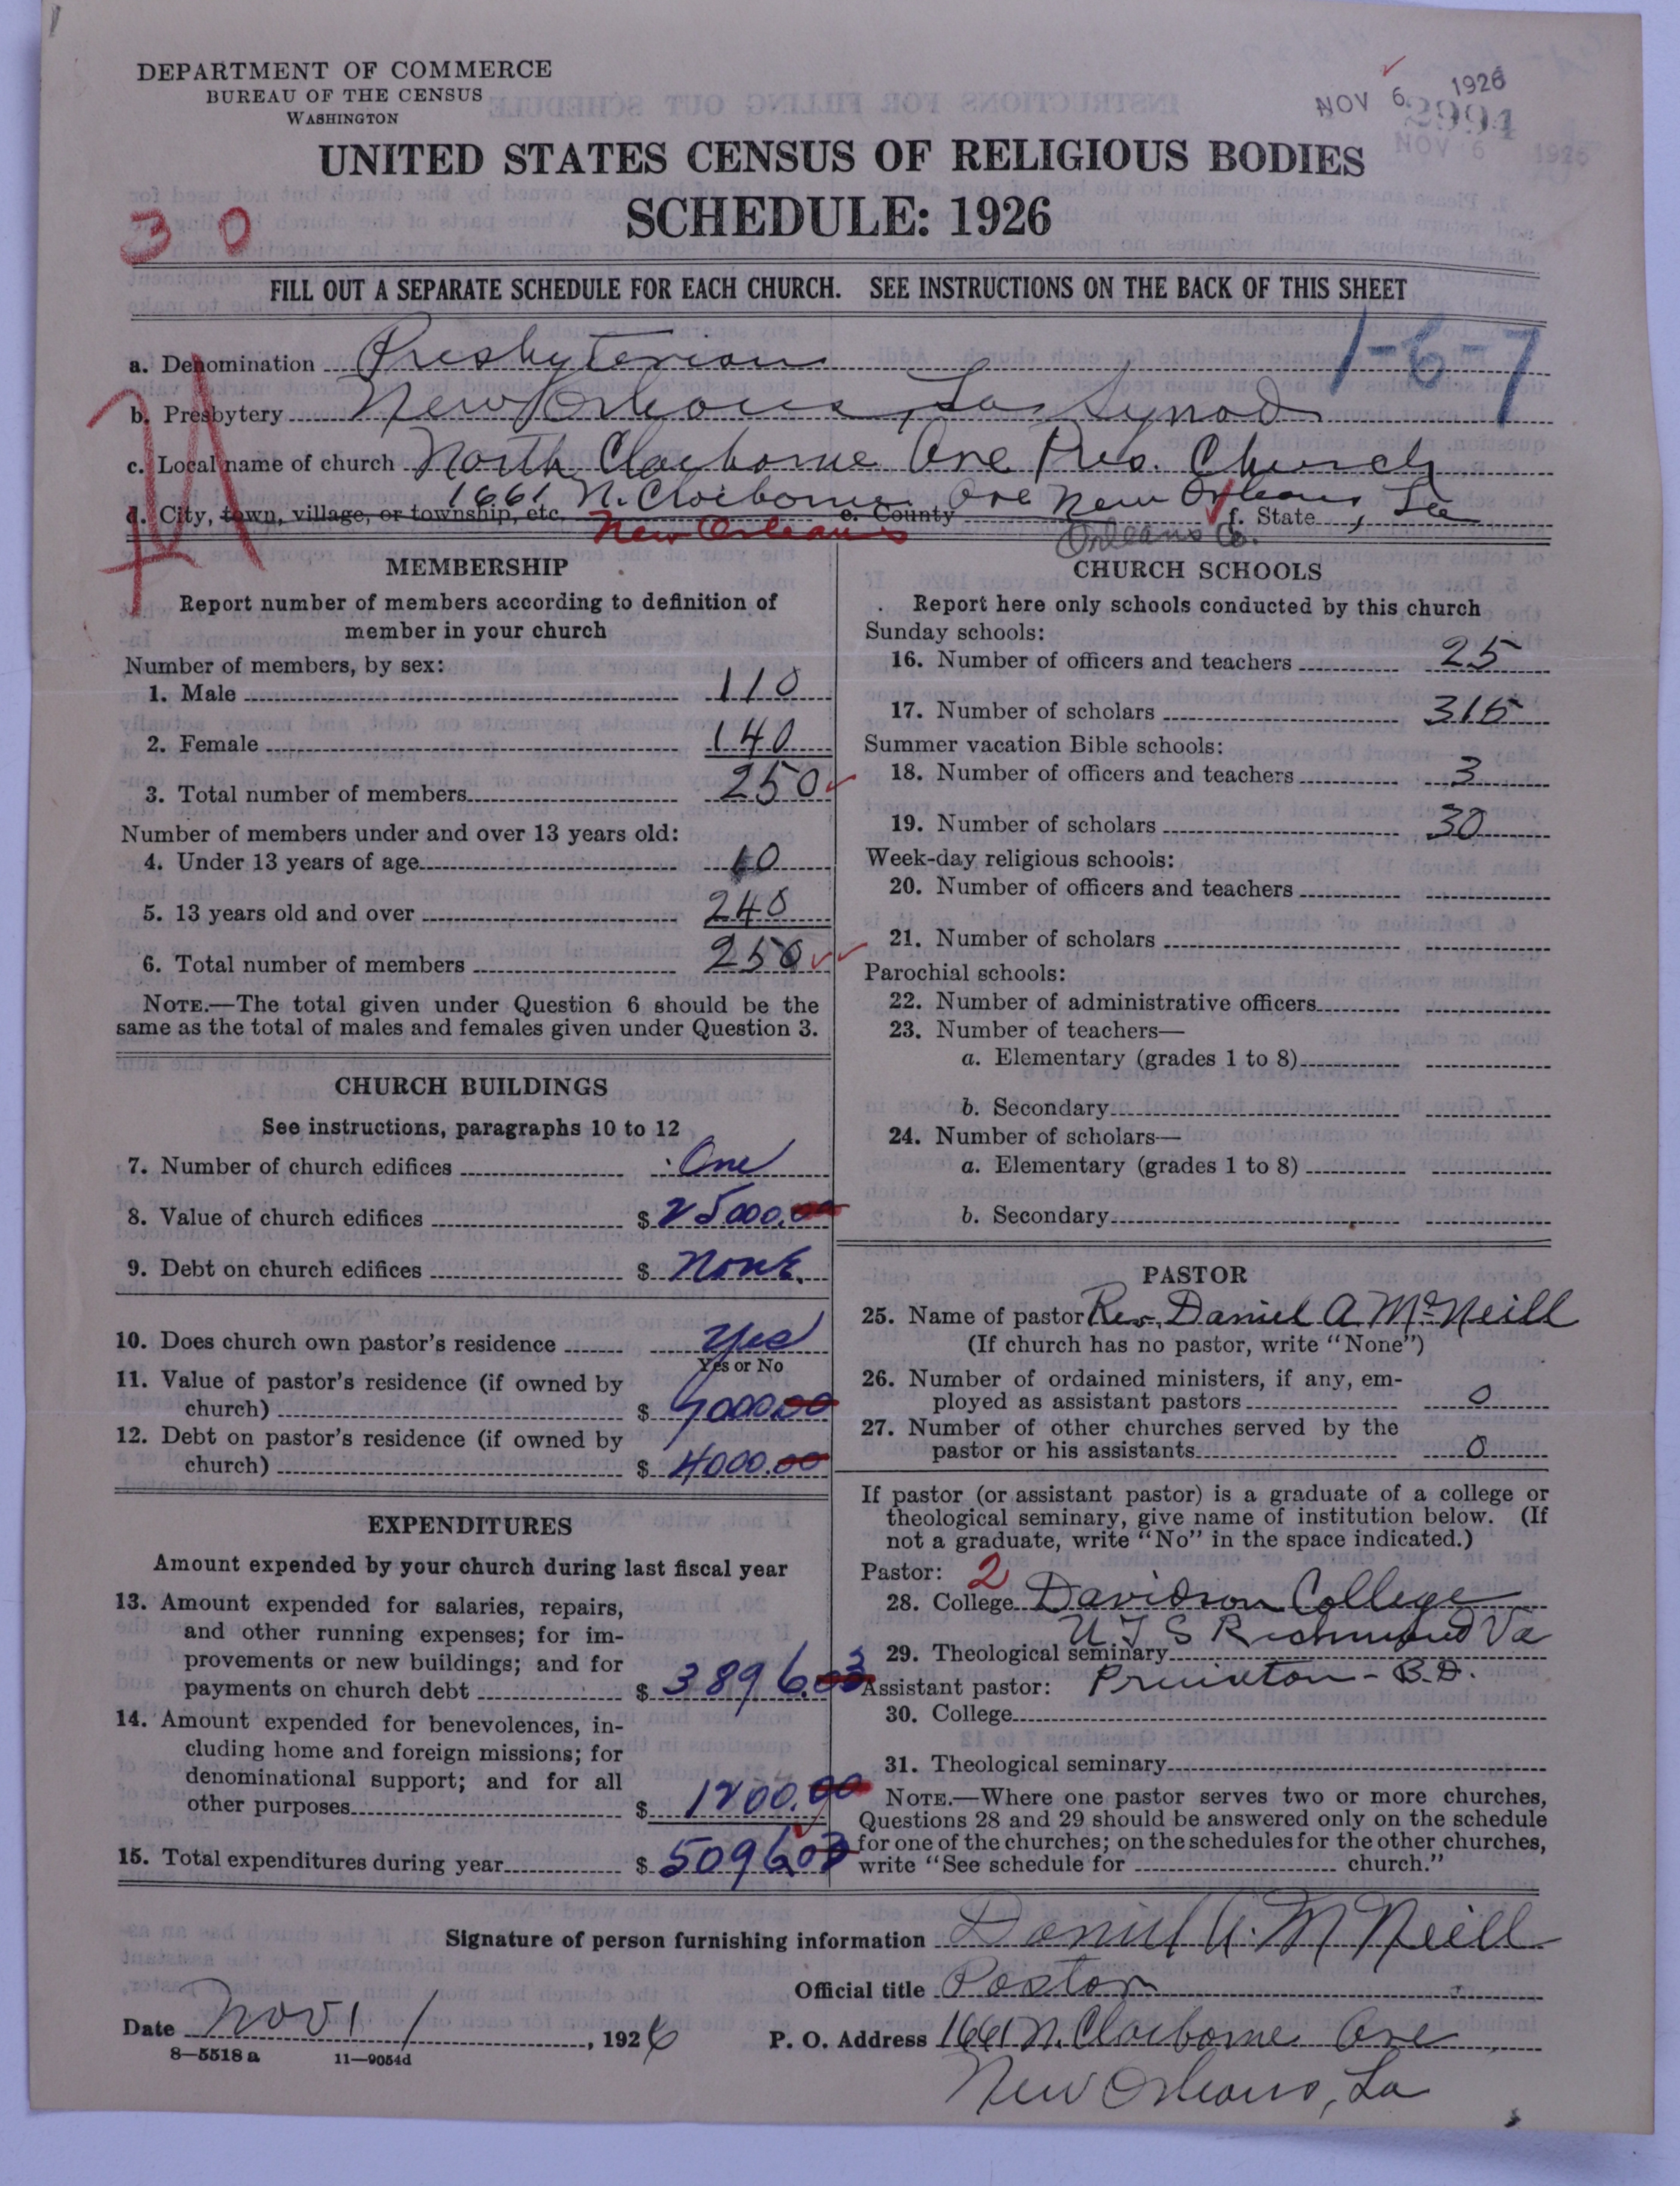 DEPARTMENT OF COMMERCE
BUREAU OF THE CENSUS
WASHINGTON
NOV 6 1926
2994
NOV 6 1926
UNITED STATES CENSUS OF RELIGIOUS BODIES
SCHEDULE: 1926
3 0
FILL OUT A SEPARATE SCHEDULE FOR EACH CHURCH. SEE INSTRUCTIONS ON THE BACK OF THIS SHEET
1-6-7
a. Denomination Presbyterian
b. Presbytery New Orleans, La Synod
c. Local name of church North Claiborne Ave Pres. Church
1661 N. Claiborne Ave New Orleans, La
d. City, town, village, or township, etc. New Orleans e. County Orleans Co. f. State
MEMBERSHIP
Report number of members according to definition of
member in your church
Number of members, by sex:
1. Male 110
2. Female 140
3. Total number of members 250
Number of members under and over 13 years old:
4. Under 13 years of age 10
5. 13 years old and over 240
6. Total number of members 250
NOTE.—The total given under Question 6 should be the
same as the total of males and females given under Question 3.
CHURCH BUILDINGS
See instructions, paragraphs 10 to 12
7. Number of church edifices One
8. Value of church edifices $ 25000.00
9. Debt on church edifices $ None.
10. Does church own pastor's residence Yes
Yes or No
11. Value of pastor's residence (if owned by
church) $ 9000.00
12. Debt on pastor's residence (if owned by
church) $ 4000.00
EXPENDITURES
Amount expended by your church during last fiscal year
13. Amount expended for salaries, repairs,
and other running expenses; for im-
provements or new buildings; and for
payments on church debt $ 3896.03
14. Amount expended for benevolences, in-
cluding home and foreign missions; for
denominational support; and for all
other purposes $ 1200.00
15. Total expenditures during year $ 5096.03
CHURCH SCHOOLS
Report here only schools conducted by this church
Sunday schools:
16. Number of officers and teachers 25
17. Number of scholars 315
Summer vacation Bible schools:
18. Number of officers and teachers 3
19. Number of scholars 30
Week-day religious schools:
20. Number of officers and teachers
21. Number of scholars
Parochial schools:
22. Number of administrative officers
23. Number of teachers—
a. Elementary (grades 1 to 8)
b. Secondary
24. Number of scholars—
a. Elementary (grades 1 to 8)
b. Secondary
PASTOR
25. Name of pastor Rev. Daniel A McNeill
(If church has no pastor, write "None")
26. Number of ordained ministers, if any, em-
ployed as assistant pastors 0
27. Number of other churches served by the
pastor or his assistants 0
If pastor (or assistant pastor) is a graduate of a college or
theological seminary, give name of institution below. (If
not a graduate, write "No" in the space indicated.)
Pastor: 2
28. College Davidson College
U T S Richmond Va
29. Theological seminary
Assistant pastor: Princeton - B.D.
30. College
31. Theological seminary
NOTE.—Where one pastor serves two or more churches,
Questions 28 and 29 should be answered only on the schedule
for one of the churches; on the schedules for the other churches,
write "See schedule for church."
Signature of person furnishing information Daniel A. McNeill
Official title Pastor
Date Nov 1, 1926 P. O. Address 1661 N. Claiborne Ave
8—5518 a 11—9054d
New Orleans, La